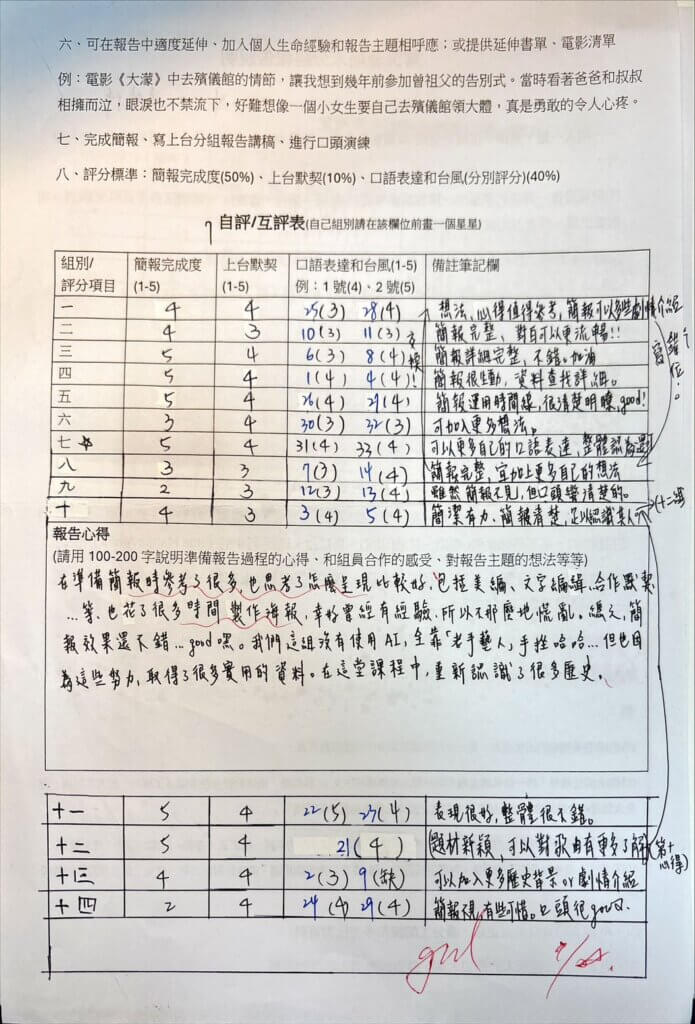 六、可在報告中適度延伸、加入個人生命經驗和報告主題相呼應；或提供延伸書單、電影清單
例：電影《大濛》中去殯儀館的情節，讓我想到幾年前參加曾祖父的告別式。當時看著爸爸和叔叔
相擁而泣，眼淚也不禁流下，好難想像一個小女生要自己去殯儀館領大體，真是勇敢的令人心疼。
七、完成簡報、寫上台分組報告講稿、進行口頭演練
八、評分標準：簡報完成度(50%)、上台默契(10%)、口語表達和台風(分別評分)(40%)
自評/互評表(自己組別請在該欄位前畫一個星星)
組別/評分項目 簡報完成度(1-5) 上台默契(1-5) 口語表達和台風(1-5) 例：1號(4)、2號(5) 備註筆記欄
一 4 4 25(3) 28(4) 想法、心得值得參考，簡報可以多些劇情介紹
二 4 3 10(3) 11(3) 簡報完整，對白可以更流暢!!
三 5 4 6(3) 8(4) 簡報詳細完整，不錯。加油
四 5 4 1(4) 4(4) 簡報很生動，資料查找詳細。
五 5 4 26(4) 29(4) 簡報運用時間線，很清楚明瞭，good!
六 3 4 30(3) 32(3) 可加入更多想法。
七 5 4 31(4) 33(4) 可以更多自己的口語表達，整體
八 3 3 7(3) 14(4) 簡報完整，宜加上更多自己的想法
九 2 3 12(3) 13(4) 雖然簡報不見，但口頭蠻清楚的。
十 4 3 3(4) 5(4) 簡潔有力、簡報清楚，足以認識其人
交換!
寫錯行
位。
(十二組
報告心得
(請用 100-200 字說明準備報告過程的心得、和組員合作的感受、對報告主題的想法等等)
在準備簡報時參考了很多，也思考了怎麼呈現比較好，包括美編、文字編緝、合作默契
...等，也花了很多時間製作海報，幸好曾經有經驗，所以不那麼地慌亂。總之，簡
報效果還不錯...good嘿。我們這組沒有使用AI，全靠「老手藝人」手拴哈哈...但也因
為這些努力，取得了很多實用的資料。在這堂課程中，重新認識了很多歷史。
十一 5 4 22(5) 23(4) 表現很好，整體很不錯。
十二 5 4 21(4) 題材新穎，可以對歌曲有更多了解
十三 4 4 2(3) 9(缺) 可以加入更多歷史背景or劇情介紹
十四 2 4 24(4) 29(4) 簡報不見，有些可惜。口頭很good。
(第十
心得)